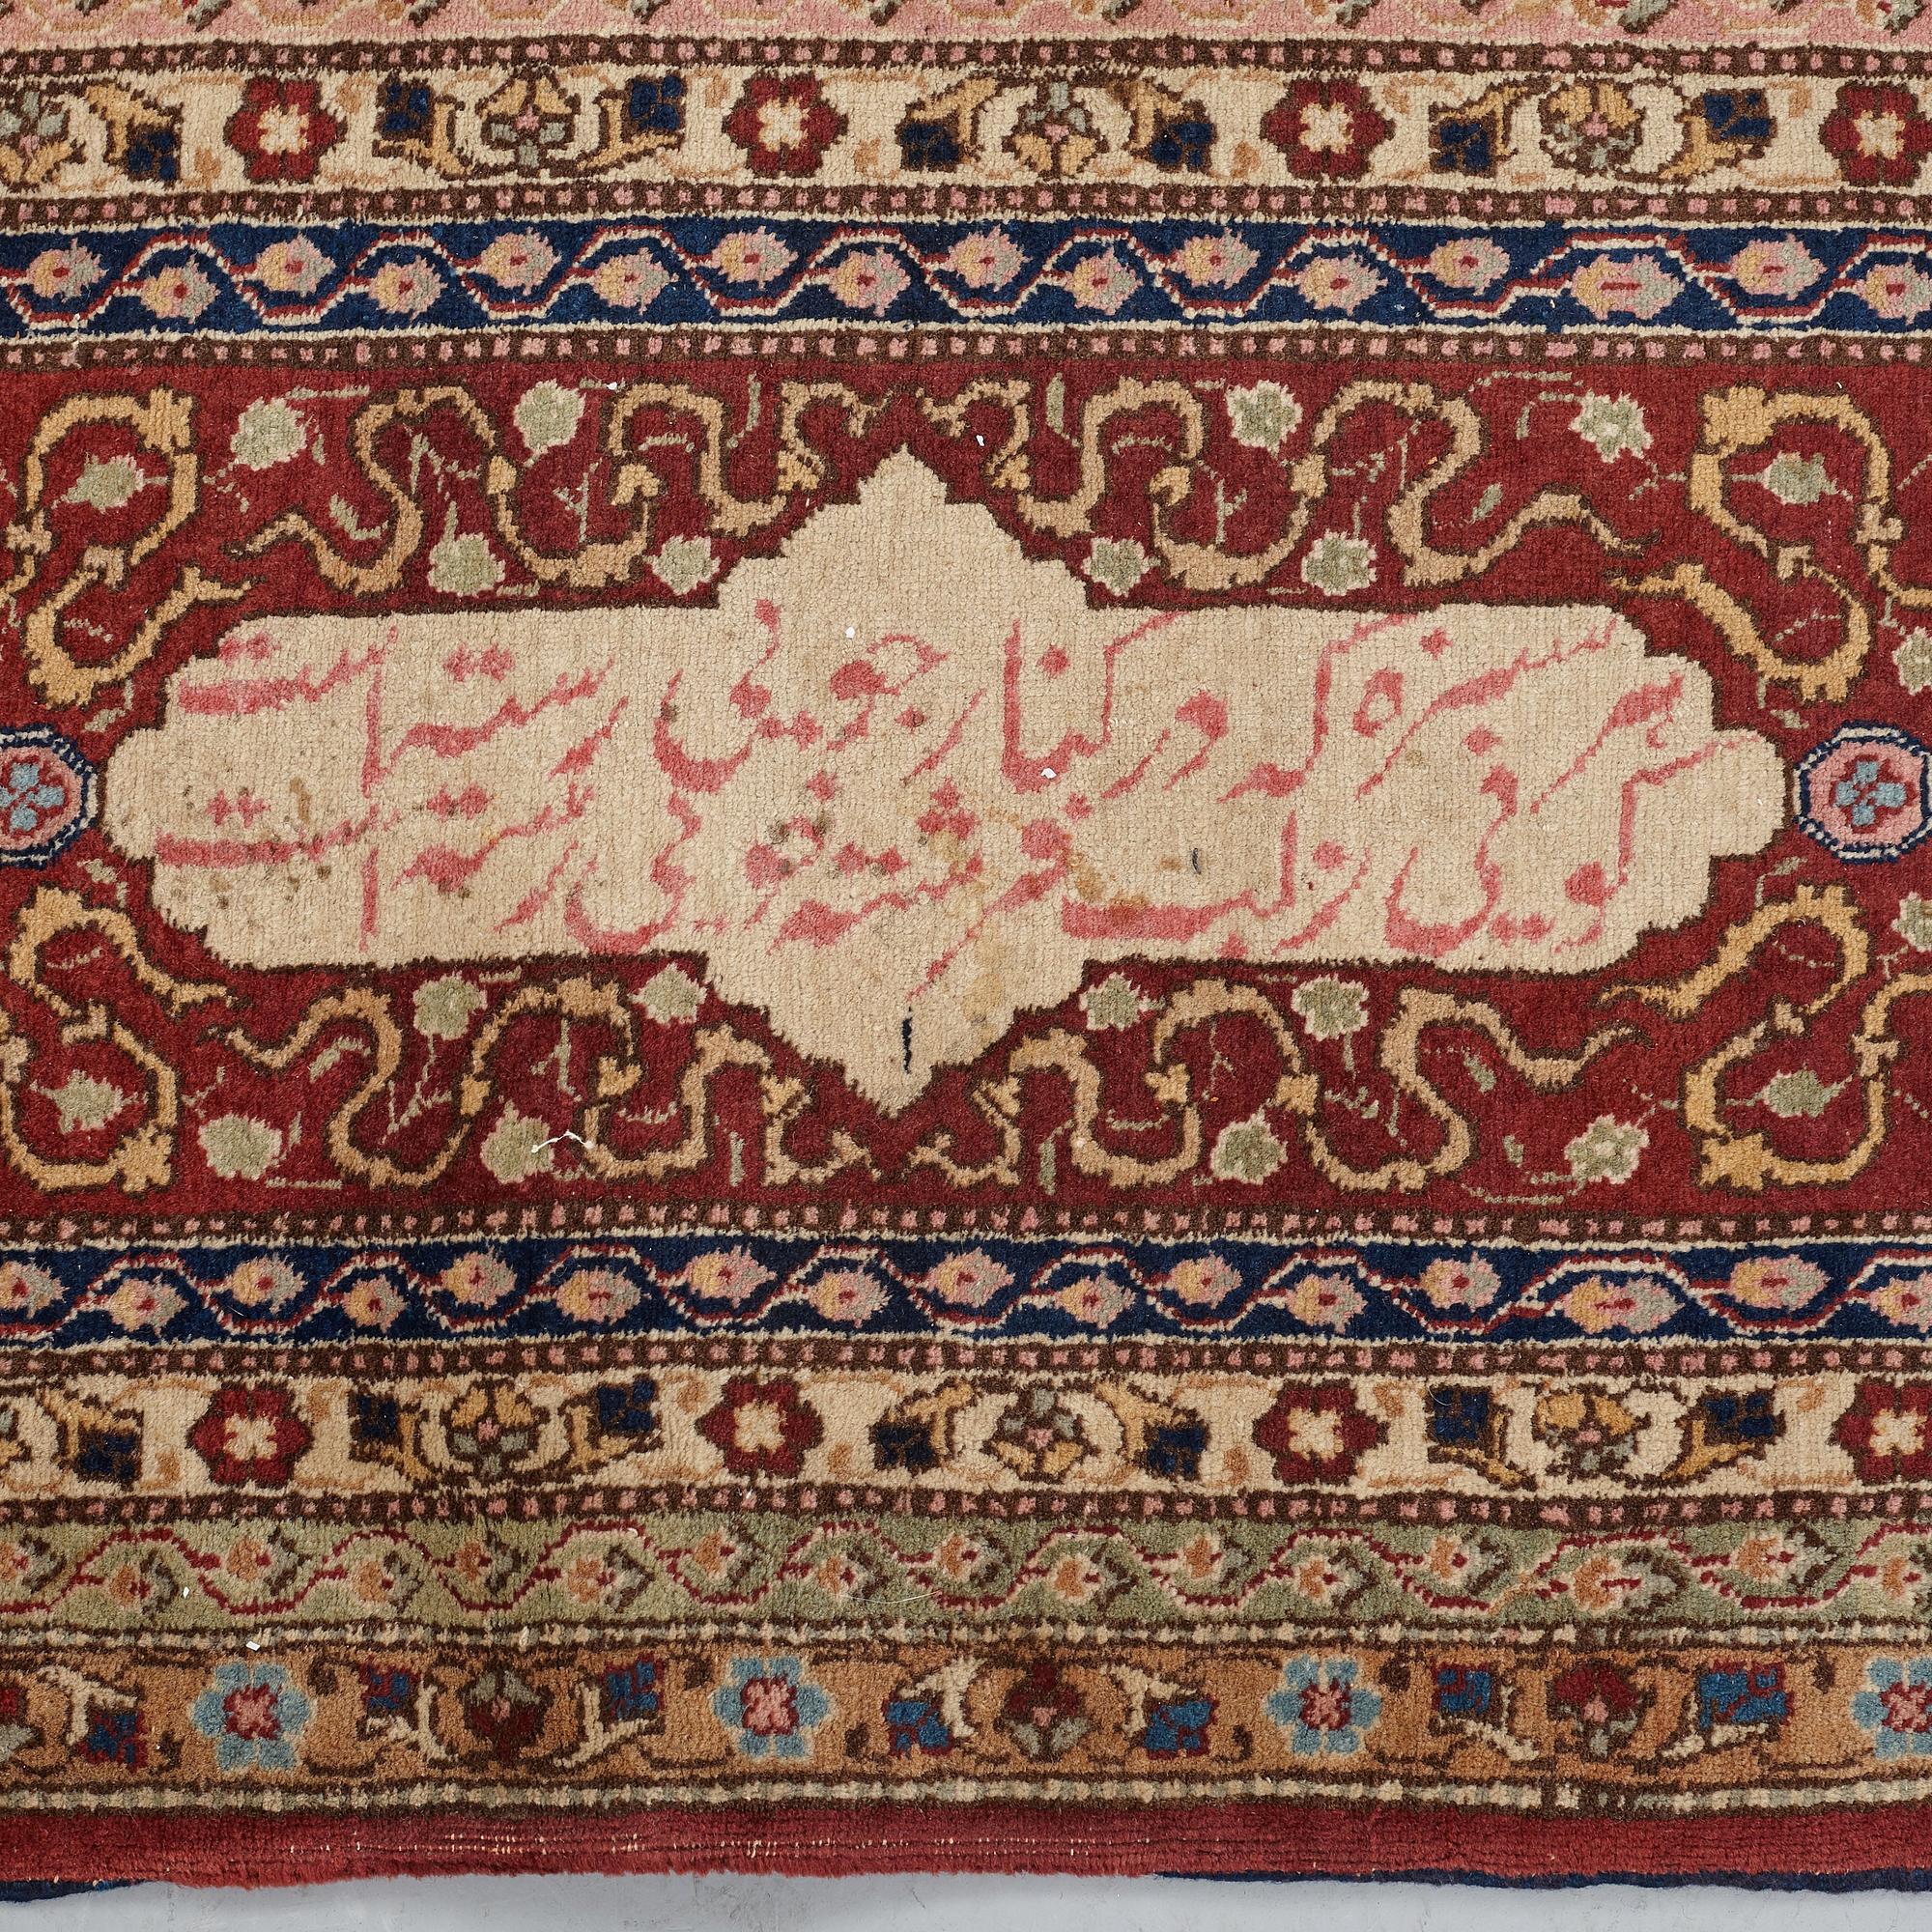 هر سبزه که در کنار جویی رسته است
گویی ز لب فرشته خویی رسته است